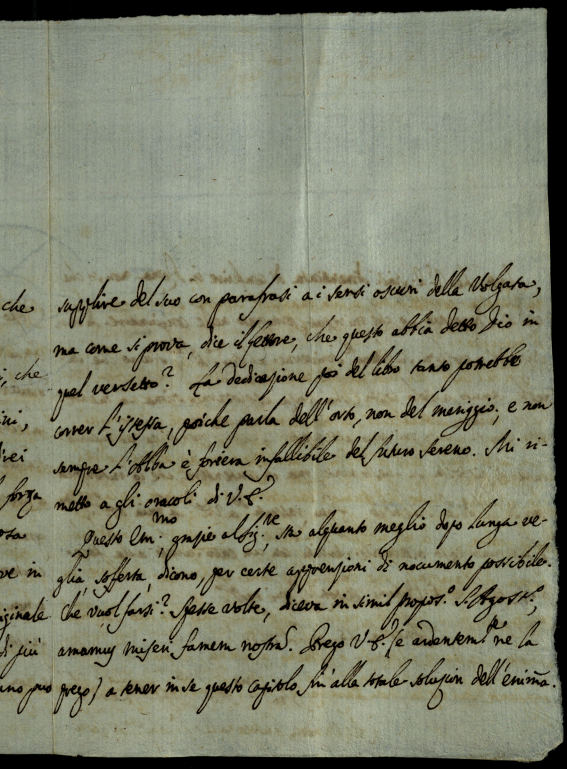 che supplire del suo con parafrasi a i sensi oscuri della Volgata,
ma come si prova, dice il lettore, che questo abbia detto Dio in
i, che quel versetto? La dedicazione poi del libro tanto potrebbe
ini, correr l'istessa, poiche parla dell'orto, non del meriggio; e non
drei sempre l'Alba è foriera infallibile del futuro sereno. Mi ri-
forza metto a gli oracoli di V.E.
osa Questo Em.mo, grazie al Sig.re, sta alquanto meglio dopo lunga ve-
ve in glia sofferta, dicono, per certe apprensioni di nocumento possibile.
iginale Che vuol farsi? Spesse volte, diceva in simil propos.o S. Agost.o,
di più amamus miseri famem nostram. Prego V.E. (e ardentem.te ne la
uno può prego) a tener in se questo capitolo fin'alla totale soluzion dell'enim̃a.